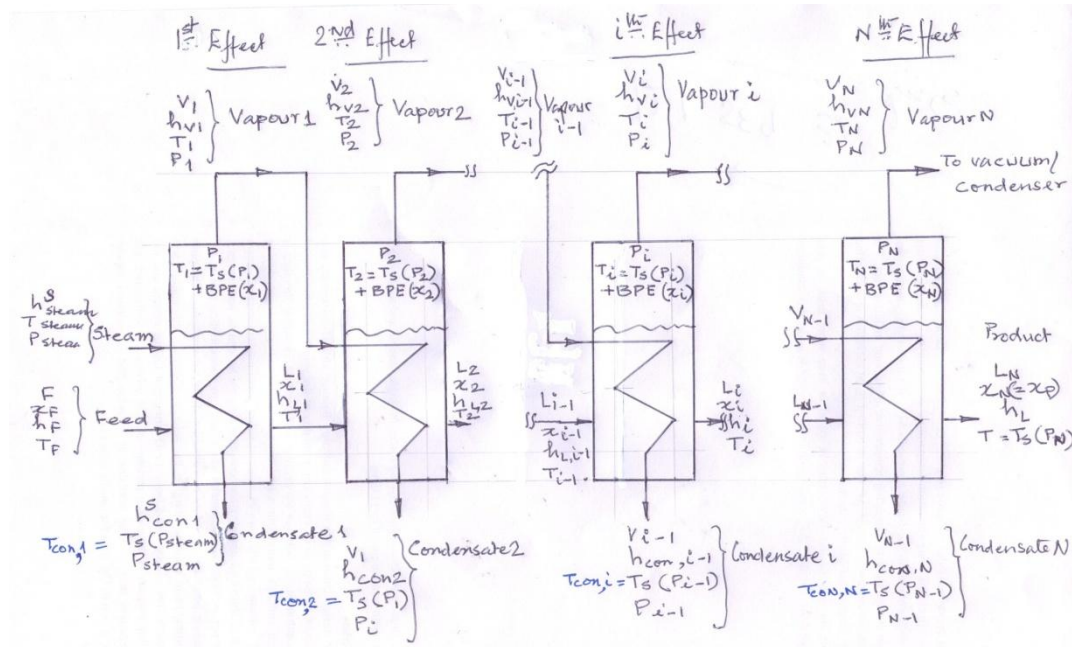 1st Effect
2nd Effect
ith Effect
Nth Effect
V1
hv1
T1
P1
Vapour 1
V2
hv2
T2
P2
Vapour 2
Vi-1
hvi-1
Ti-1
Pi-1
Vapour
i-1
Vi
hvi
Ti
Pi
Vapour i
VN
hvN
TN
PN
Vapour N
To vacuum/
condenser
P1
T1 = Ts(P1)
+BPE(x1)
P2
T2 = Ts(P2)
+BPE(x2)
Pi
Ti = Ts(Pi)
+BPE(xi)
PN
TN = Ts(PN)
+BPE(xN)
hSsteam
Tsteam
Psteam
Steam
F
xF
hF
TF
Feed
L1
x1
hL1
T1
L2
x2
hL2
T2
Li-1
xi-1
hL,i-1
Ti-1
Li
xi
hi
Ti
VN-1
LN-1
Product
LN
xN(=xP)
hL
T = Ts(PN)
hScon1
Tcon,1 = Ts(Psteam)
Psteam
Condensate 1
V1
hcon2
Tcon,2 = Ts(P1)
Pi
Condensate 2
Vi-1
hcon,i-1
Tcon,i = Ts(Pi-1)
Pi-1
Condensate i
VN-1
hcon,N
Tcon,N = Ts(PN-1)
PN-1
Condensate N